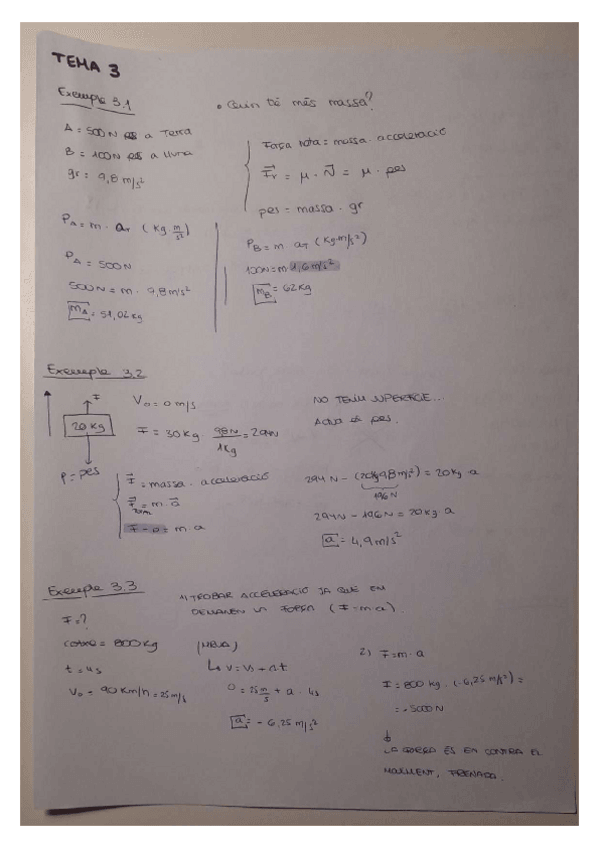 TEMA 3
Exemple 3.1
• Quin té més massa?
A = 500N a Terra
B = 100N a lluna
gr = 9,8 m/s²
Força tota = massa · acceleració
Fr = μ · N = μ · pes
pes = massa · gr
PA = m · ar (kg m/s²)
PA = 500N
500N = m · 9,8 m/s²
mA = 51,02 kg
PB = m aT (kg m/s²)
100N = m 1,6 m/s²
mB = 62kg
Exemple 3.2
F
20 kg
P = pes
V0 = 0 m/s
F = 30 kg 98N/1kg = 294N
NO TENIM SUPERFICIE...
pes.
F = massa · acceleració
F = m · a
= m · a
294N - (20kg 9,8 m/s²) = 20 kg · a
196N
294N - 196N = 20 kg a
a = 4,9 m/s²
Exemple 3.3
1) TROBAR ACCELERACIÓ JA QUE EM
DEMANEN LA FORÇA (F = m · a)
F = ?
cotxe = 800 kg
t = 4s
V0 = 90 km/h = 25 m/s
(MRUA)
V = V0 + a · t
0 = 25 m/s + a · 4s
a = - 6,25 m/s²
2) F = m · a
F = 800 kg · (-6,25 m/s²) =
= - 5000 N
LA FORÇA ÉS EN CONTRA EL
MOVIMENT, FRENADA.